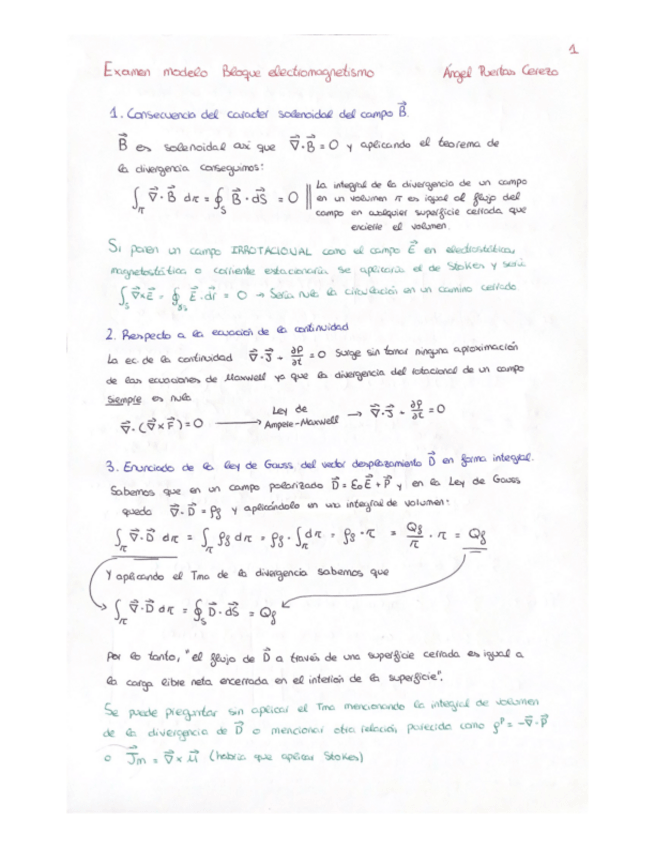 1
Examen modelo Bloque electromagnetismo Ángel Puertas Cerezo
1. Consecuencia del caracter solenoidal del campo B⃗.
B⃗ es solenoidal así que ∇⃗·B⃗ = 0 y aplicando el teorema de
la divergencia conseguimos:
∫_τ ∇⃗·B⃗ dτ = ∮_S B⃗·dS⃗ = 0 || La integral de la divergencia de un campo
en un volumen τ es igual al flujo del
campo en cualquier superficie cerrada que
encierre el volumen.
Si ponen un campo IRROTACIONAL como el campo E⃗ en electrostática,
magnetostática o corriente estacionaria se aplicaría el de Stokes y sería
∫_S ∇⃗×E⃗ = ∮_∂S E⃗·dr⃗ = 0 → Sería nula la circulación en un camino cerrado
2. Respecto a la ecuación de la continuidad
La ec. de la continuidad ∇⃗·J⃗ + ∂ρ/∂t = 0 surge sin tomar ninguna aproximación
de las ecuaciones de Maxwell ya que la divergencia del rotacional de un campo
siempre es nula
∇⃗·(∇⃗×F⃗) = 0 ⟶ Ley de Ampere-Maxwell → ∇⃗·J⃗ + ∂ρ/∂t = 0
3. Enunciado de la ley de Gauss del vector desplazamiento D⃗ en forma integral.
Sabemos que en un campo polarizado D⃗ = ε₀E⃗ + P⃗ y en la Ley de Gauss
queda ∇⃗·D⃗ = ρf y aplicándolo en una integral de volumen:
∫_τ ∇⃗·D⃗ dτ = ∫_τ ρf dτ = ρf · ∫_τ dτ = ρf · τ = Qf/τ · τ = Qf
Y aplicando el Tma de la divergencia sabemos que
∫_τ ∇⃗·D⃗ dτ = ∮_S D⃗·dS⃗ = Qf
Por lo tanto, "el flujo de D⃗ a través de una superficie cerrada es igual a
la carga libre neta encerrada en el interior de la superficie".
Se puede preguntar sin aplicar el Tma mencionando la integral de volumen
de la divergencia de D⃗ o mencionar otra relación parecida como ρᴾ = -∇⃗·P⃗
o J⃗m = ∇⃗×M⃗ (habría que aplicar Stokes)